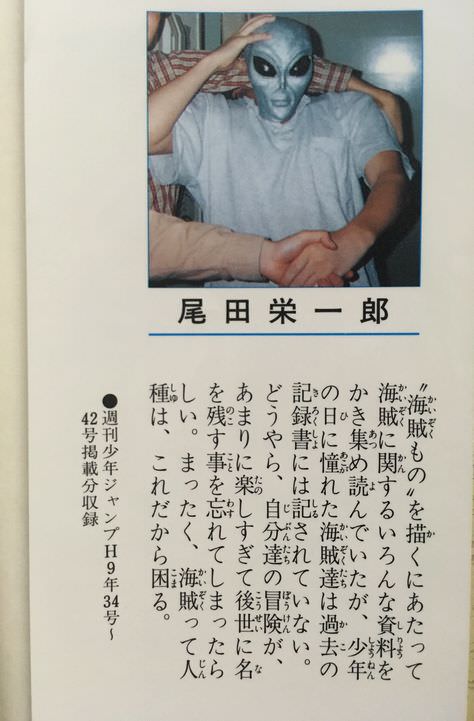 尾田栄一郎
“海賊もの”を描くにあたって
海賊に関するいろんな資料を
かき集め読んでいたが、少年
の日に憧れた海賊達は過去の
記録書には記されていない。
どうやら、自分達の冒険が、
あまりに楽しすぎて後世に名
を残す事を忘れてしまったら
しい。まったく、海賊って人
種は、これだから困る。
●週刊少年ジャンプH9年34号〜
42号掲載分収録